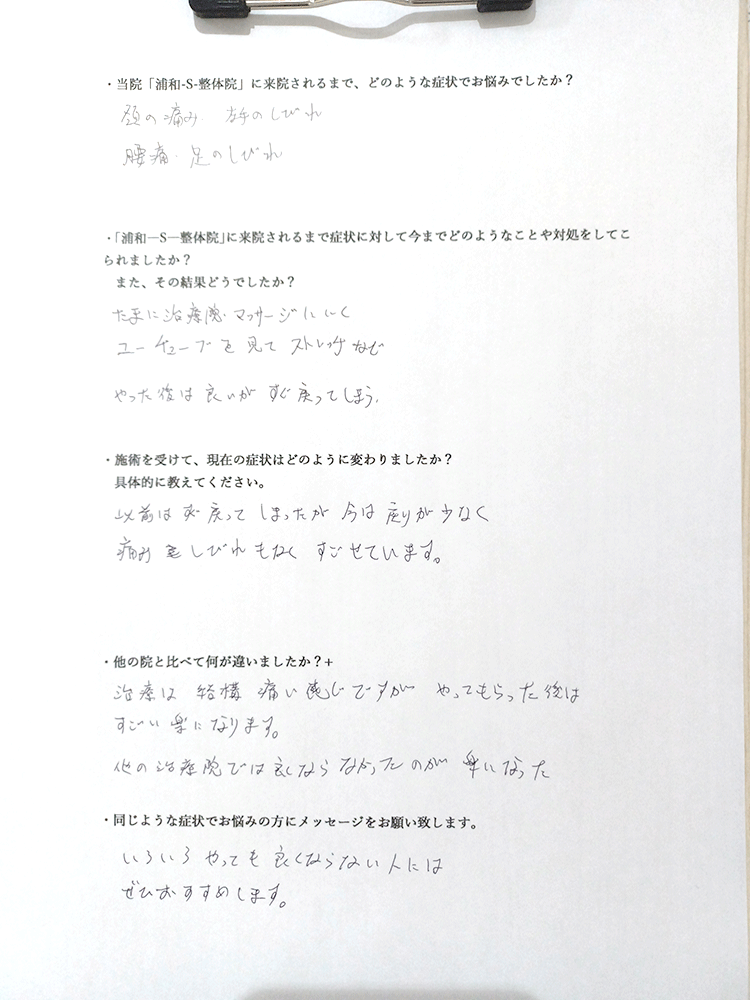 ・当院「浦和-S-整体院」に来院されるまで、どのような症状でお悩みでしたか？
頚の痛み. 左手のしびれ
腰痛・足のしびれ
・「浦和―S―整体院」に来院されるまで症状に対して今までどのようなことや対処をしてこ
られましたか？
また、その結果どうでしたか？
たまに治療院・マッサージにいく
ユーチューブを見て ストレッチなど
やった後は 良いが すぐ戻ってしまう.
・施術を受けて、現在の症状はどのように変わりましたか？
具体的に教えてください。
以前は すぐ戻って しまったが 今は 戻りが少なく
痛み も しびれ もなく すごせています。
・他の院と比べて何が違いましたか？+
治療は 結構 痛い 感じですが やってもらった後は
すごい 楽になります。
他の治療院では良くならなかったのが 楽になった
・同じような症状でお悩みの方にメッセージをお願い致します。
いろいろ やっても 良くならない人には
ぜひおすすめします。